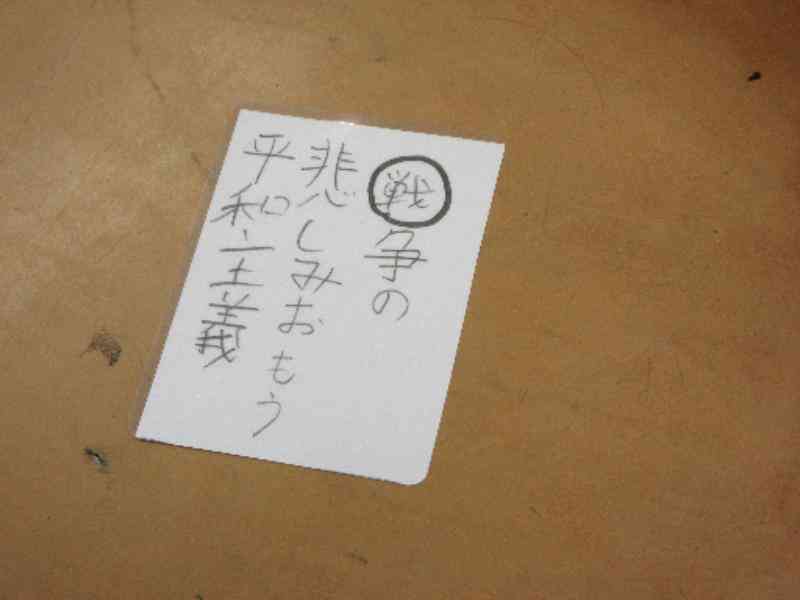 戦争の
悲しみおもう
平和主義